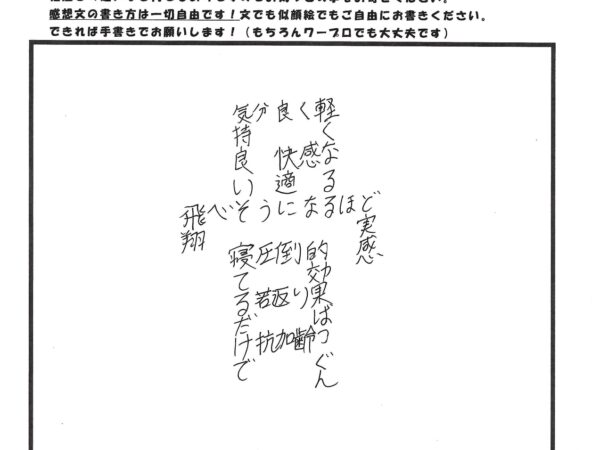 感想文の書き方は一切自由です！文でも似顔絵でもご自由にお書きください。
できれば手書きでお願いします！（もちろんワープロでも大丈夫です）
気分良く軽くなる
気持良い
快感
快適
飛べそうになるほど実感
飛翔
圧倒的効果ばつぐん
若返り
抗加齢
寝てるだけで